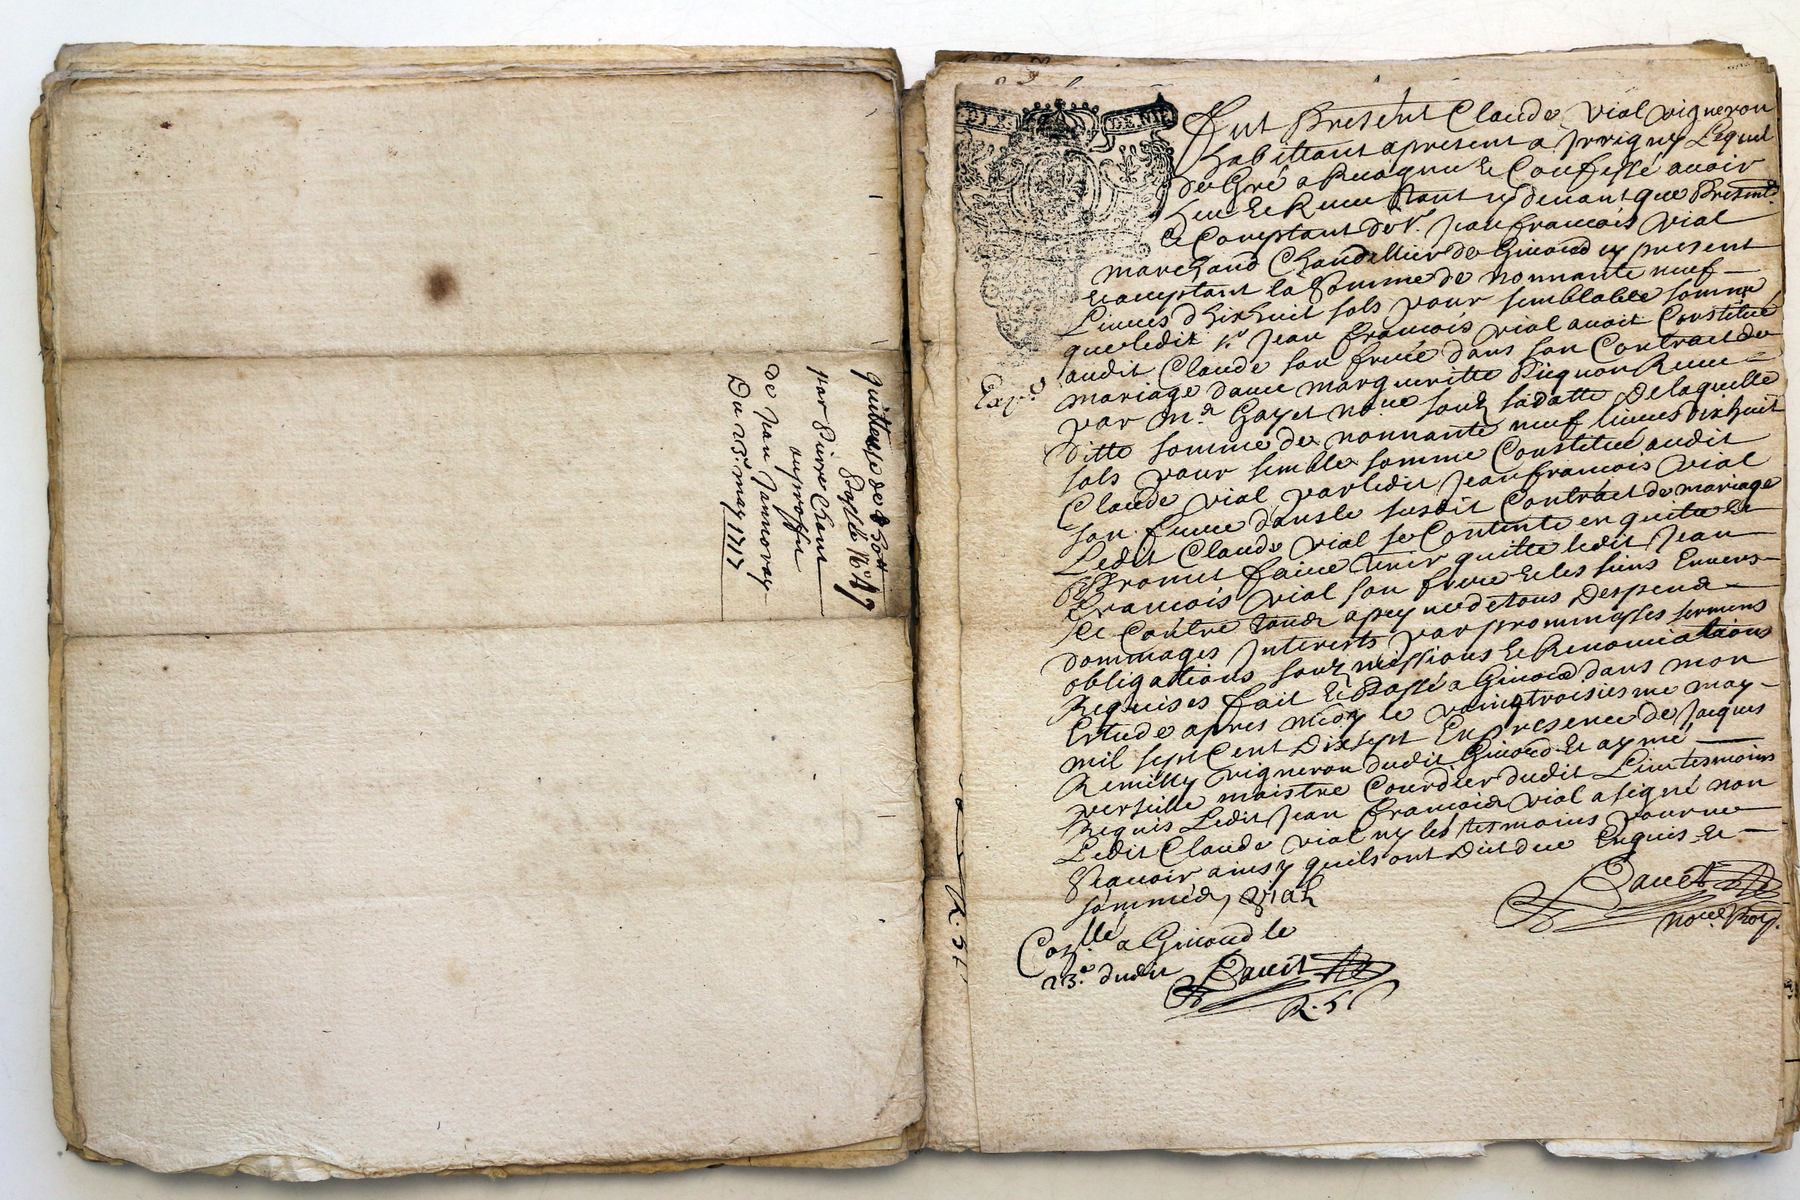 quittance de 30tt
par Pierre Chant
au proffit
de Jean Jannoray
Du 23e. may 1717
DIX DENIE
Fut Present Claude Vial vigneron
habittant apresent a Irrigny Lequel
de Gré a Recognu & Confessé avoir
heu & Receu tant cy devant que Presentt
& Comptant de sr. Jean francois Vial
marchand Chandellier de Givord cy present
& acceptant la somme de nonnante neuf
Livres dhixhuit sols pour semblable somme
que ledit sr Jean francois vial avoit Constitué
audit Claude son frere dans son Contract de
mariage avec margueritte Receu
Expé
par Me. Gayet nore souz sa datte De laquelle
ditte somme de nonnante neuf livres dixhuit
sols pour semble somme Constitué audit
Claude vial par ledit Jean francois Vial
son frere dans le susdit Contract de mariage
Ledit Claude vial se Contente en quitte &
Promet faire tenir quitte ledit Jean
francois vial son frere & les siens Envers
& Contre touts a peyne de tous Despens
dommages Interests par prommesses sermens
obligations souzmissions & Renonciations
Requises fait & Passé a Givord dans mon
Estude apres midy le vaingtroisiesme may
mil sept Cent Dixsept En presence de Jacques
Remilly vigneron dudit Givord & aymé
verseille maistre Cordier dudit Lieu tesmoins
Requis Ledit Jean francois vial a signé non
Ledit Claude vial ny les tesmoins pour ne
scavoir ainsy quils ont Dict due Enquis &
sommés, vial
nore. Roy.
Conllé a Givord le
23e dudit
R. 5 s
R. 5 s